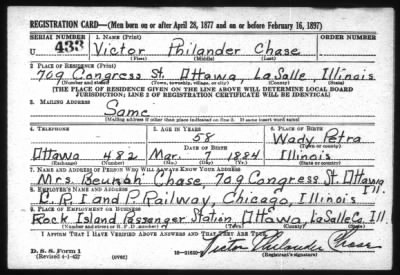 REGISTRATION CARD—(Men born on or after April 28, 1877 and on or before February 16, 1897)
SERIAL NUMBER 1. NAME (Print) ORDER NUMBER
U 433 Victor Philander Chase
(First) (Middle) (Last)
2. PLACE OF RESIDENCE (Print)
709 Congress St. Ottawa, LaSalle, Illinois
(Number and street) (Town, township, village, or city) (County) (State)
[THE PLACE OF RESIDENCE GIVEN ON THE LINE ABOVE WILL DETERMINE LOCAL BOARD
JURISDICTION; LINE 2 OF REGISTRATION CERTIFICATE WILL BE IDENTICAL]
3. MAILING ADDRESS
Same
[Mailing address if other than place indicated on line 2. If same insert word same]
4. TELEPHONE 5. AGE IN YEARS 6. PLACE OF BIRTH
58 Wady Petra
DATE OF BIRTH (Town or county)
Ottawa 482 Mar. 7 1884 Illinois
(Exchange) (Number) (Mo.) (Day) (Yr.) (State or country)
7. NAME AND ADDRESS OF PERSON WHO WILL ALWAYS KNOW YOUR ADDRESS
Mrs. Beulah Chase, 709 Congress St. Ottawa Ill.
8. EMPLOYER'S NAME AND ADDRESS
C. R. I and P. Railway, Chicago, Illinois
9. PLACE OF EMPLOYMENT OR BUSINESS
Rock Island Passenger Station, Ottawa, LaSalle Co. Ill.
(Number and street or R. F. D. number) (Town) (County) (State)
I AFFIRM THAT I HAVE VERIFIED ABOVE ANSWERS AND THAT THEY ARE TRUE.
D. S. S. Form 1
(Revised 4-1-42) (over) Victor Philander Chase
(Registrant's signature)